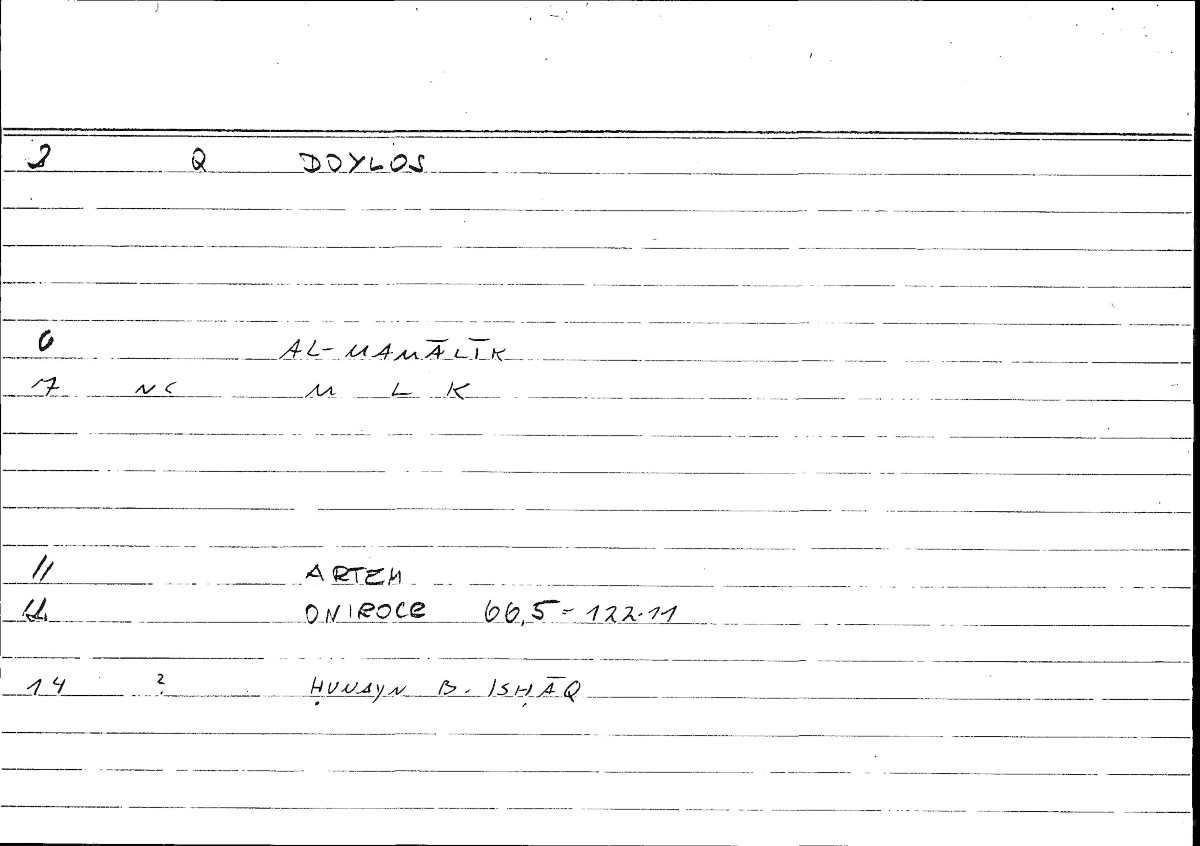 2 Q DOYLOS
6 AL-MAMĀLĪK
7 NC M L K
11 ARTEM
12 ONIROCR 66,5-122.11
14 ? ḤUNAYN B. ISḤĀQ